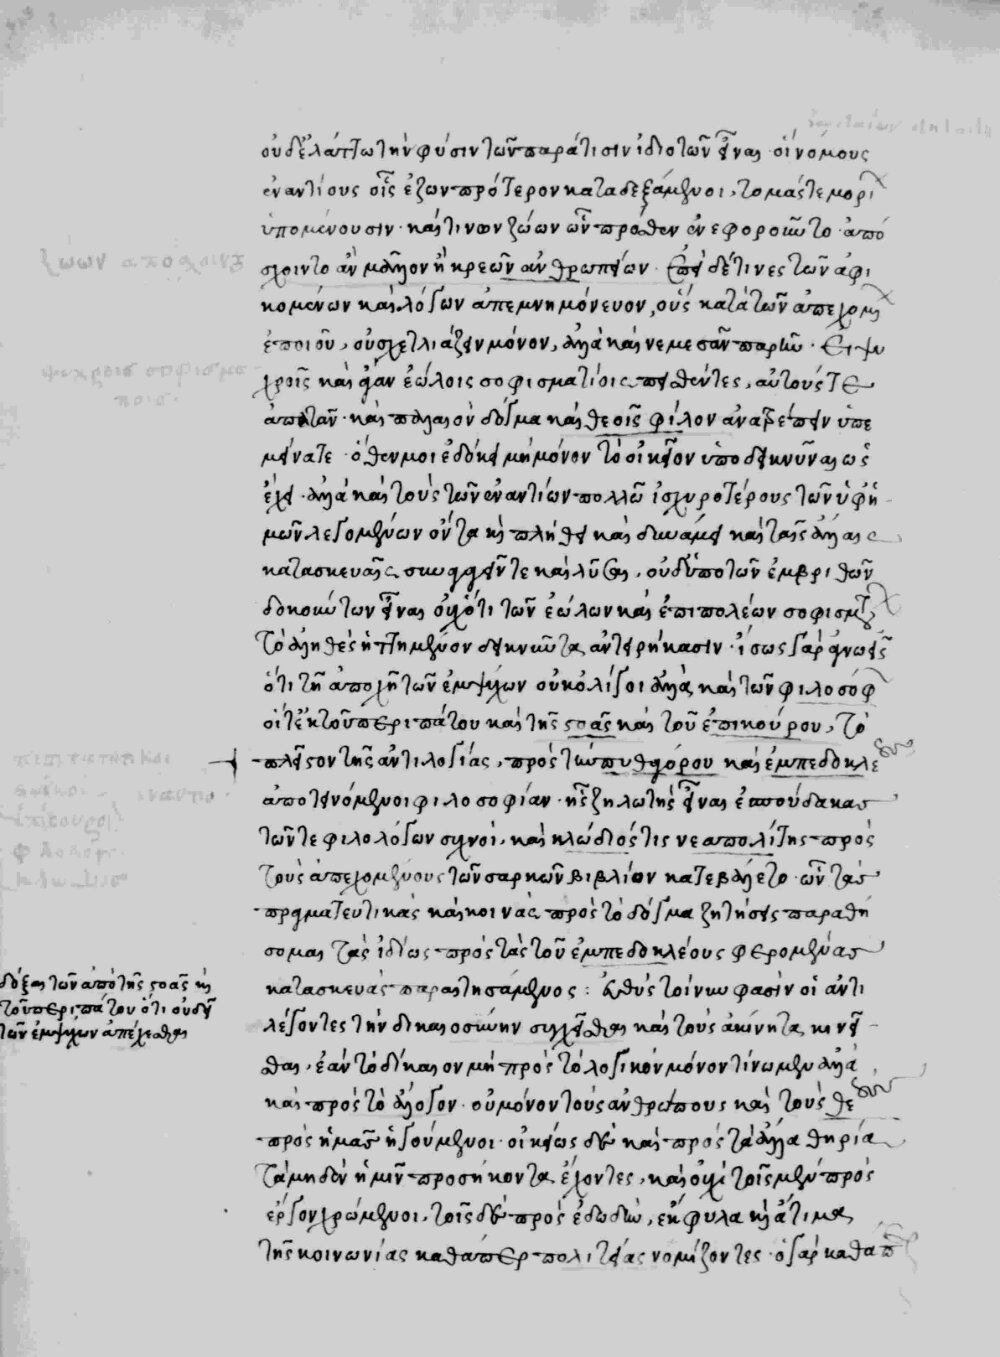 οὐδ' ἐλάττω τὴν φύσιν τῶν παρά τισιν ἰδιοτῶν εἶναι· οἳ νόμους
ἐναντίους οἷς ἔζων πρότερον καταδεξάμενοι, τομάς τε μορί
ὑπομένουσιν· καί τινων ζώων ὧν πρόσθεν ἐνεφοροῦντο· ἀπό
σχοιντο ἂν μᾶλλον ἢ κρεῶν ἀνθρωπείων· ἐπεὶ δέ τινες τῶν ἀφι
κομένων καὶ λόγων ἀπεμνημόνευον, οὓς κατὰ τῶν ἀπεχομέ
ἐποιοῦ, οὐ σχετλιάζειν μόνον, ἀλλὰ καὶ νεμεσᾶν παρῆν· εἰ ψυ
χροῖς καὶ ἄγαν ἑώλοις σοφισματίοις πεισθέντες, αὑτούς τε
ἀπατᾶν· καὶ παλαιὸν δόγμα καὶ θεοῖς φίλον ἀνατρέπειν ὑπε
μείνατε· ὅθεν μοι ἐδόκει μὴ μόνον τὸ οἰκεῖον ὑποδεικνύναι ὡς
ἔχει· ἀλλὰ καὶ τοὺς τῶν ἐναντίων πολλῶ ἰσχυροτέρους τῶν ὑφ' ἡ
μῶν λεγομένων ὄντα καὶ πλήθει καὶ δυνάμει καὶ ταῖς ἄλλαις
κατασκευαῖς συναγαγεῖν τε καὶ λῦσαι, οὐδ' ὑπὸ τῶν ἐμβριθῶν
δοκούντων εἶναι οὐχ ὅτι τῶν ἑώλων καὶ ἐπιπολέων σοφισμάτ
τὸ ἀληθὲς ἡττημένον δεικνῦντα ἀντειρήκασιν· ἴσως γὰρ ἀγνοεῖς
ὅτι τῆ ἀποχῆ τῶν ἐμψύχων οὐκ ὀλίγοι ἀλλὰ καὶ τῶν φιλοσόφ
οἵ τ' ἐκ τοῦ περιπάτου καὶ τῆς στοᾶς καὶ τοῦ ἐπικούρου, τὸ
πλεῖστον τῆς ἀντιλογίας, πρὸς τὴν πυθαγόρου καὶ ἐμπεδοκλέους
ἀποτεινόμενοι φιλοσοφίαν· ἧς ζηλωτὴς εἶναι ἐσπούδακας
τῶν τε φιλολόγων συχνοὶ, καὶ κλώδιός τις νεαπολίτης πρὸς
τοὺς ἀπεχομένους τῶν σαρκῶν βιβλίον κατεβάλλετο· ὧν τὰς
πραγματευτικὰς καὶ κοινὰς πρὸς τὸ δόγμα ζητήσεις παραθή
σομαι τὰς ἰδίως πρὸς τὰς τοῦ ἐμπεδοκλέους φερομένας
κατασκευὰς παραιτησάμενος: εὐθὺς τοίνυν φασὶν οἱ ἀντι
λέγοντες τὴν δικαιοσύνην συγχεῖσθαι καὶ τοὺς ἀκίνητα κινεῖ
σθαι, ἐὰν τὸ δίκαιον μὴ πρὸς τὸ λογικὸν μόνον τίνωμεν ἀλλὰ
καὶ πρὸς τὸ ἄλογον· οὐ μόνον τοὺς ἀνθρώπους καὶ τοὺς θεοὺς
πρὸς ἡμᾶς ἡγούμενοι· οἰκείως δὲ καὶ πρὸς τὰ ἄλλα θηρία
τὰ μηδὲν ἡμῖν προσήκοντα ἔχοντες, καὶ οὐχὶ τοῖς μὲν πρὸς
ἔργον χρώμενοι, τοῖς δὲ πρὸς ἐδωδὴν, ἔκφυλα καὶ ἄτιμα
τῆς κοινωνίας καθάπερ πολιτείας νομίζοντες· ὁ γὰρ καθάπ
ζώων ἀπόσχοιντο
ψυχροῖς σοφισμα
τίοις.
δόξαι τῶν ἀπὸ τῆς στοᾶς καὶ
τοῦ περιπάτου ὅτι οὐ δεῖ
τῶν ἐμψύχων ἀπέχεσθαι